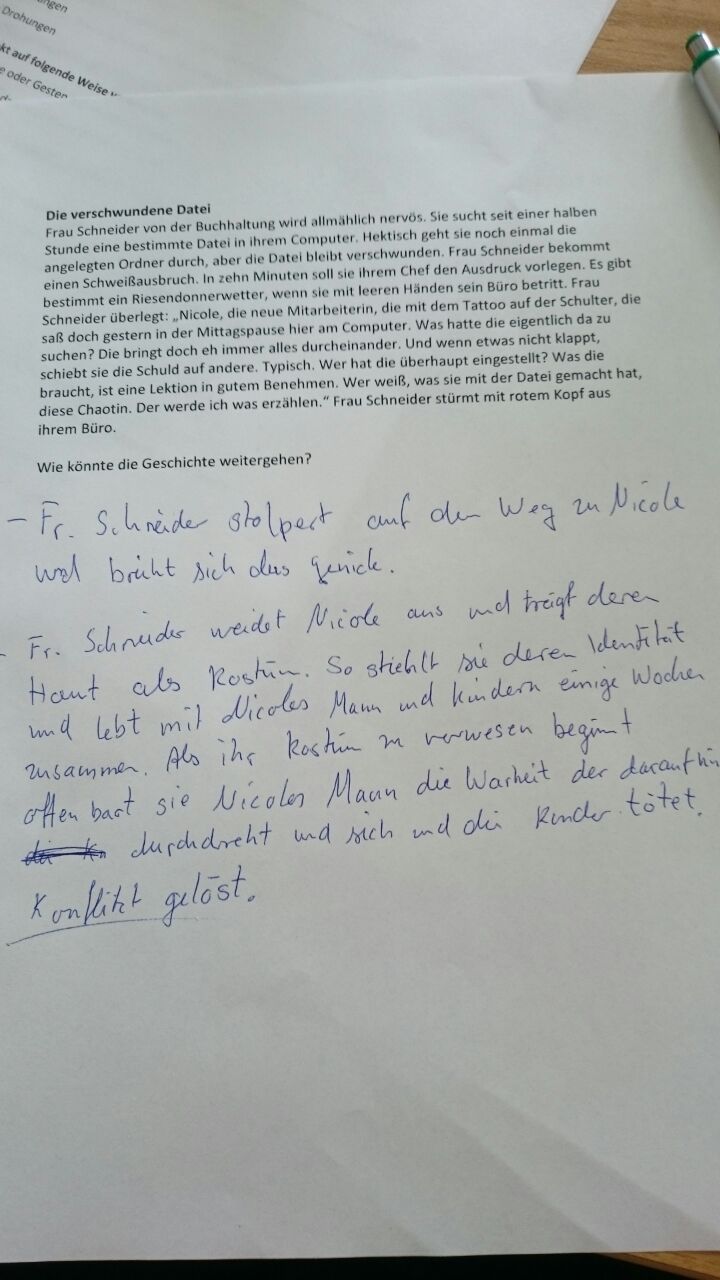 ungen
Drohungen
kt auf folgende Weise
e oder Gesten
Die verschwundene Datei
Frau Schneider von der Buchhaltung wird allmählich nervös. Sie sucht seit einer halben
Stunde eine bestimmte Datei in ihrem Computer. Hektisch geht sie noch einmal die
angelegten Ordner durch, aber die Datei bleibt verschwunden. Frau Schneider bekommt
einen Schweißausbruch. In zehn Minuten soll sie ihrem Chef den Ausdruck vorlegen. Es gibt
bestimmt ein Riesendonnerwetter, wenn sie mit leeren Händen sein Büro betritt. Frau
Schneider überlegt: „Nicole, die neue Mitarbeiterin, die mit dem Tattoo auf der Schulter, die
saß doch gestern in der Mittagspause hier am Computer. Was hatte die eigentlich da zu
suchen? Die bringt doch eh immer alles durcheinander. Und wenn etwas nicht klappt,
schiebt sie die Schuld auf andere. Typisch. Wer hat die überhaupt eingestellt? Was die
braucht, ist eine Lektion in gutem Benehmen. Wer weiß, was sie mit der Datei gemacht hat,
diese Chaotin. Der werde ich was erzählen.“ Frau Schneider stürmt mit rotem Kopf aus
ihrem Büro.
Wie könnte die Geschichte weitergehen?
– Fr. Schneider stolpert auf den Weg zu Nicole
und bricht sich das Genick.
– Fr. Schneider weidet Nicole aus und trägt deren
Haut als Kostüm. So stiehlt sie deren Identität
und lebt mit Nicoles Mann und Kindern einige Wochen
zusammen. Als ihr Kostüm zu verwesen beginnt
offenbart sie Nicoles Mann die Warheit der daraufhin
durchdreht und sich und die Kinder tötet.
Konflikt gelöst.